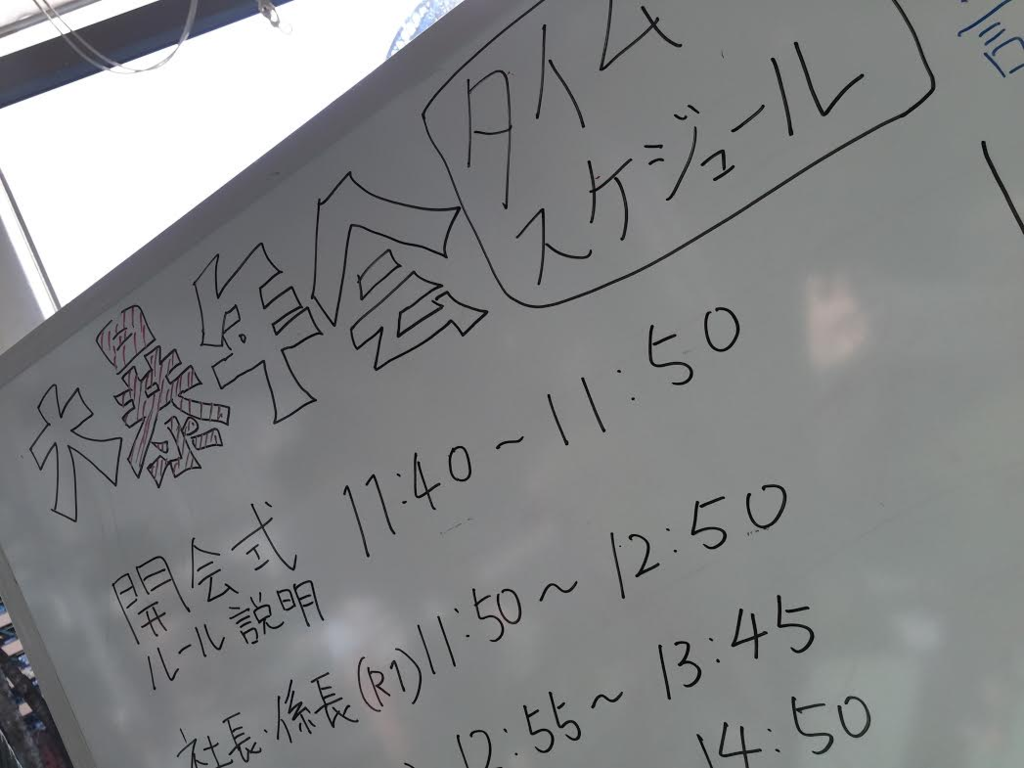 大暴年会
タイム
スケジュール
開会式 11:40~11:50
ルール説明
社長・係長(R1) 11:50~12:50
12:55~13:45
14:50